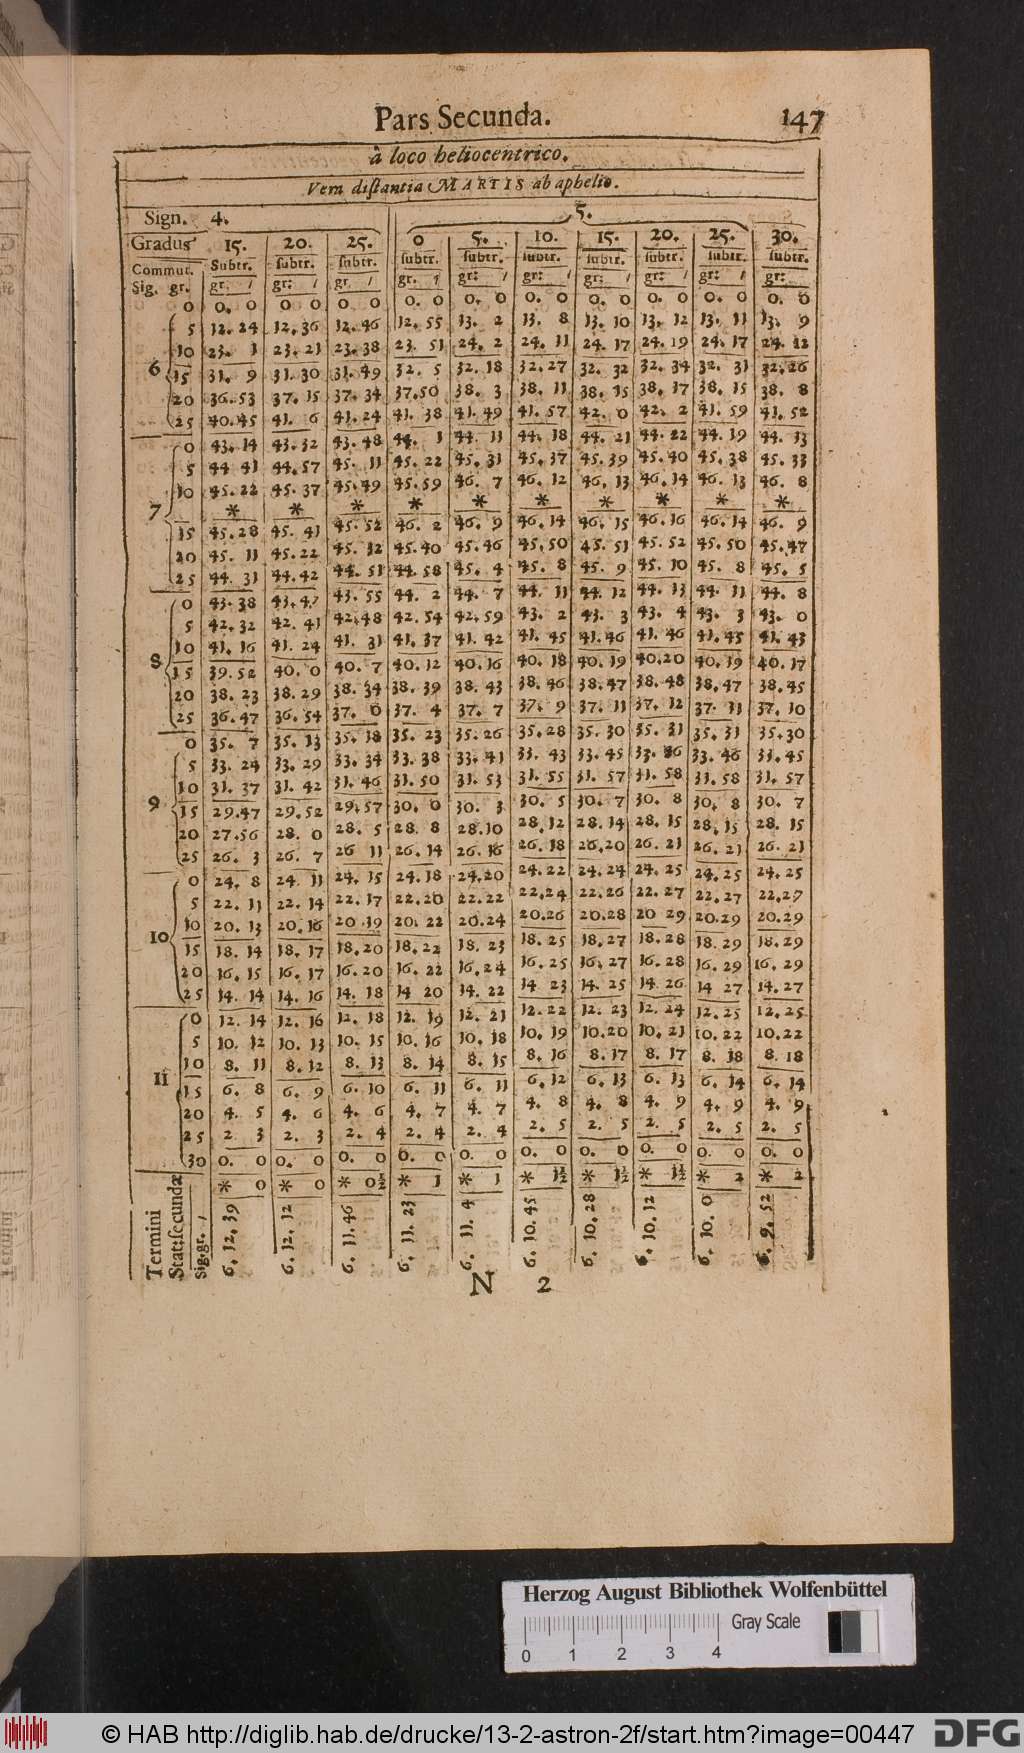 Pars Secunda. 147
à loco heliocentrico.
Vera distantia MARTIS ab aphelio.
Sign. 4. 5.
Gradus 15. 20. 25. 0 5. 10. 15. 20. 25. 30.
Commut. Subtr. subtr. subtr. subtr. subtr. subtr. subtr. subtr. subtr. subtr.
Sig. gr. gr. ı gr: ı gr. ı gr. ı gr: ı gr: ı gr: ı gr: ı gr: ı gr:
0 0. 0 0 0 0 0 0. 0 0. 0 0. 0 0. 0 0. 0 0. 0 0. 0
5 12. 24 12. 36 12. 46 12. 55 13. 2 13. 8 13. 10 13. 12 13. 11 13. 9
10 23. 1 23. 21 23. 38 23 51 24. 2 24. 11 24. 17 24. 19 24. 17 24. 12
6 15 31. 9 31. 30 31. 49 32. 5 32. 18 32. 27 32. 32 32. 34 32. 31 32. 26
20 36. 53 37. 15 37. 34 37. 50 38. 3 38. 11 38. 15 38. 17 38. 15 38. 8
25 40. 45 41. 6 41. 24 41. 38 41. 49 41. 57 42. 0 42. 2 41. 59 41. 52
0 43. 14 43. 32 43. 48 44. 1 44. 11 44. 18 44. 21 44. 22 44. 19 44. 13
5 44 41 44. 57 45. 11 45. 22 45. 31 45. 37 45. 39 45. 40 45. 38 45. 33
10 45. 22 45. 37 45. 49 45. 59 46. 7 46. 12 46. 13 46. 14 46. 13 46. 8
7 * * * * * * * * * *
15 45. 28 45. 41 45. 52 46. 2 46. 9 46. 14 46. 15 46. 16 46. 14 46. 9
20 45. 11 45. 22 45. 32 45. 40 45. 46 45. 50 45. 51 45. 52 45. 50 45. 47
25 44. 31 44. 42 44. 51 44. 58 45. 4 45. 8 45. 9 45. 10 45. 8 45. 5
0 43. 38 43. 43. 55 44. 2 44. 7 44. 11 44. 12 44. 13 44. 11 44. 8
5 42. 32 42. 41 42. 48 42. 54 42. 59 43. 2 43. 3 43. 4 43. 3 43. 0
10 41. 16 41. 24 41. 31 41. 37 41. 42 41. 45 41. 46 41. 46 41. 45 41. 43
8 15 39. 52 40. 0 40. 7 40. 12 40. 16 40. 18 40. 19 40. 20 40. 19 40. 17
20 38. 23 38. 29 38. 34 38. 39 38. 43 38. 46 38. 47 38. 48 38. 47 38. 45
25 36. 47 36. 54 37. 0 37. 4 37. 7 37. 9 37. 11 37. 12 37. 11 37. 10
0 35. 7 35. 13 35. 18 35. 23 35. 26 35. 28 35. 30 35. 31 35. 31 35. 30
5 33. 24 33. 29 33. 34 33. 38 33. 41 33. 43 33. 45 33. 46 33. 46 33. 45
10 31. 37 31. 42 31. 46 31. 50 31. 53 31. 55 31. 57 31. 58 31. 58 31. 57
9 15 29. 47 29. 52 29. 57 30. 0 30. 3 30. 5 30. 7 30. 8 30. 8 30. 7
20 27. 56 28. 0 28. 5 28. 8 28. 10 28. 12 28. 14 28. 15 28. 15 28. 15
25 26. 3 26. 7 26 11 26. 14 26. 16 26. 18 26. 20 26. 21 26. 21 26. 21
0 24. 8 24 11 24. 15 24. 18 24. 20 24. 22 24. 24 24. 25 24. 25 24. 25
5 22. 11 22. 14 22. 17 22. 20 22. 22 22. 24 22. 26 22. 27 22. 27 22. 27
10 20. 13 20. 16 20 19 20. 22 20. 24 20. 26 20. 28 20 29 20. 29 20. 29
10 15 18. 14 18. 17 18. 20 18. 22 18. 23 18. 25 18. 27 18. 28 18. 29 18. 29
20 16. 15 16. 17 16. 20 16. 22 16. 24 16. 25 16. 27 16. 28 16. 29 16. 29
25 14. 14 14. 16 14. 18 14 20 14. 22 14 23 14. 25 14. 26 14 27 14. 27
0 12. 14 12. 16 12. 18 12. 19 12. 21 12. 22 12. 23 12. 24 12. 25 12. 25
5 10. 12 10. 13 10. 15 10. 16 10. 18 10. 19 10. 20 10. 21 10. 22 10. 22
10 8. 11 8. 12 8. 13 8. 14 8. 15 8. 16 8. 17 8. 17 8. 18 8. 18
11 15 6. 8 6. 9 6. 10 6. 11 6. 11 6. 12 6. 13 6. 13 6. 14 6. 14
20 4. 5 4. 6 4. 6 4. 7 4. 7 4. 8 4. 8 4. 9 4. 9 4. 9
25 2. 3 2. 3 2. 4 2. 4 2. 4 2. 5 2. 5 2. 5 2. 5 2. 5
30 0. 0 0. 0 0. 0 0. 0 0. 0 0. 0 0. 0 0. 0 0. 0 0. 0
* 0 * 0 * 0½ * 1 * 1 * 1½ * 1½ * 1½ * 2 * 2
Termini
Stat: secundæ
Sig. gr. ı
6. 12. 39 6. 12. 12 6. 11. 46 6. 11. 23 6. 11. 4 6. 10. 45 6. 10. 28 6. 10. 12 6. 10. 0 6. 9. 52
N 2
Herzog August Bibliothek Wolfenbüttel
Gray Scale
0 1 2 3 4
© HAB http://diglib.hab.de/drucke/13-2-astron-2f/start.htm?image=00447 DFG